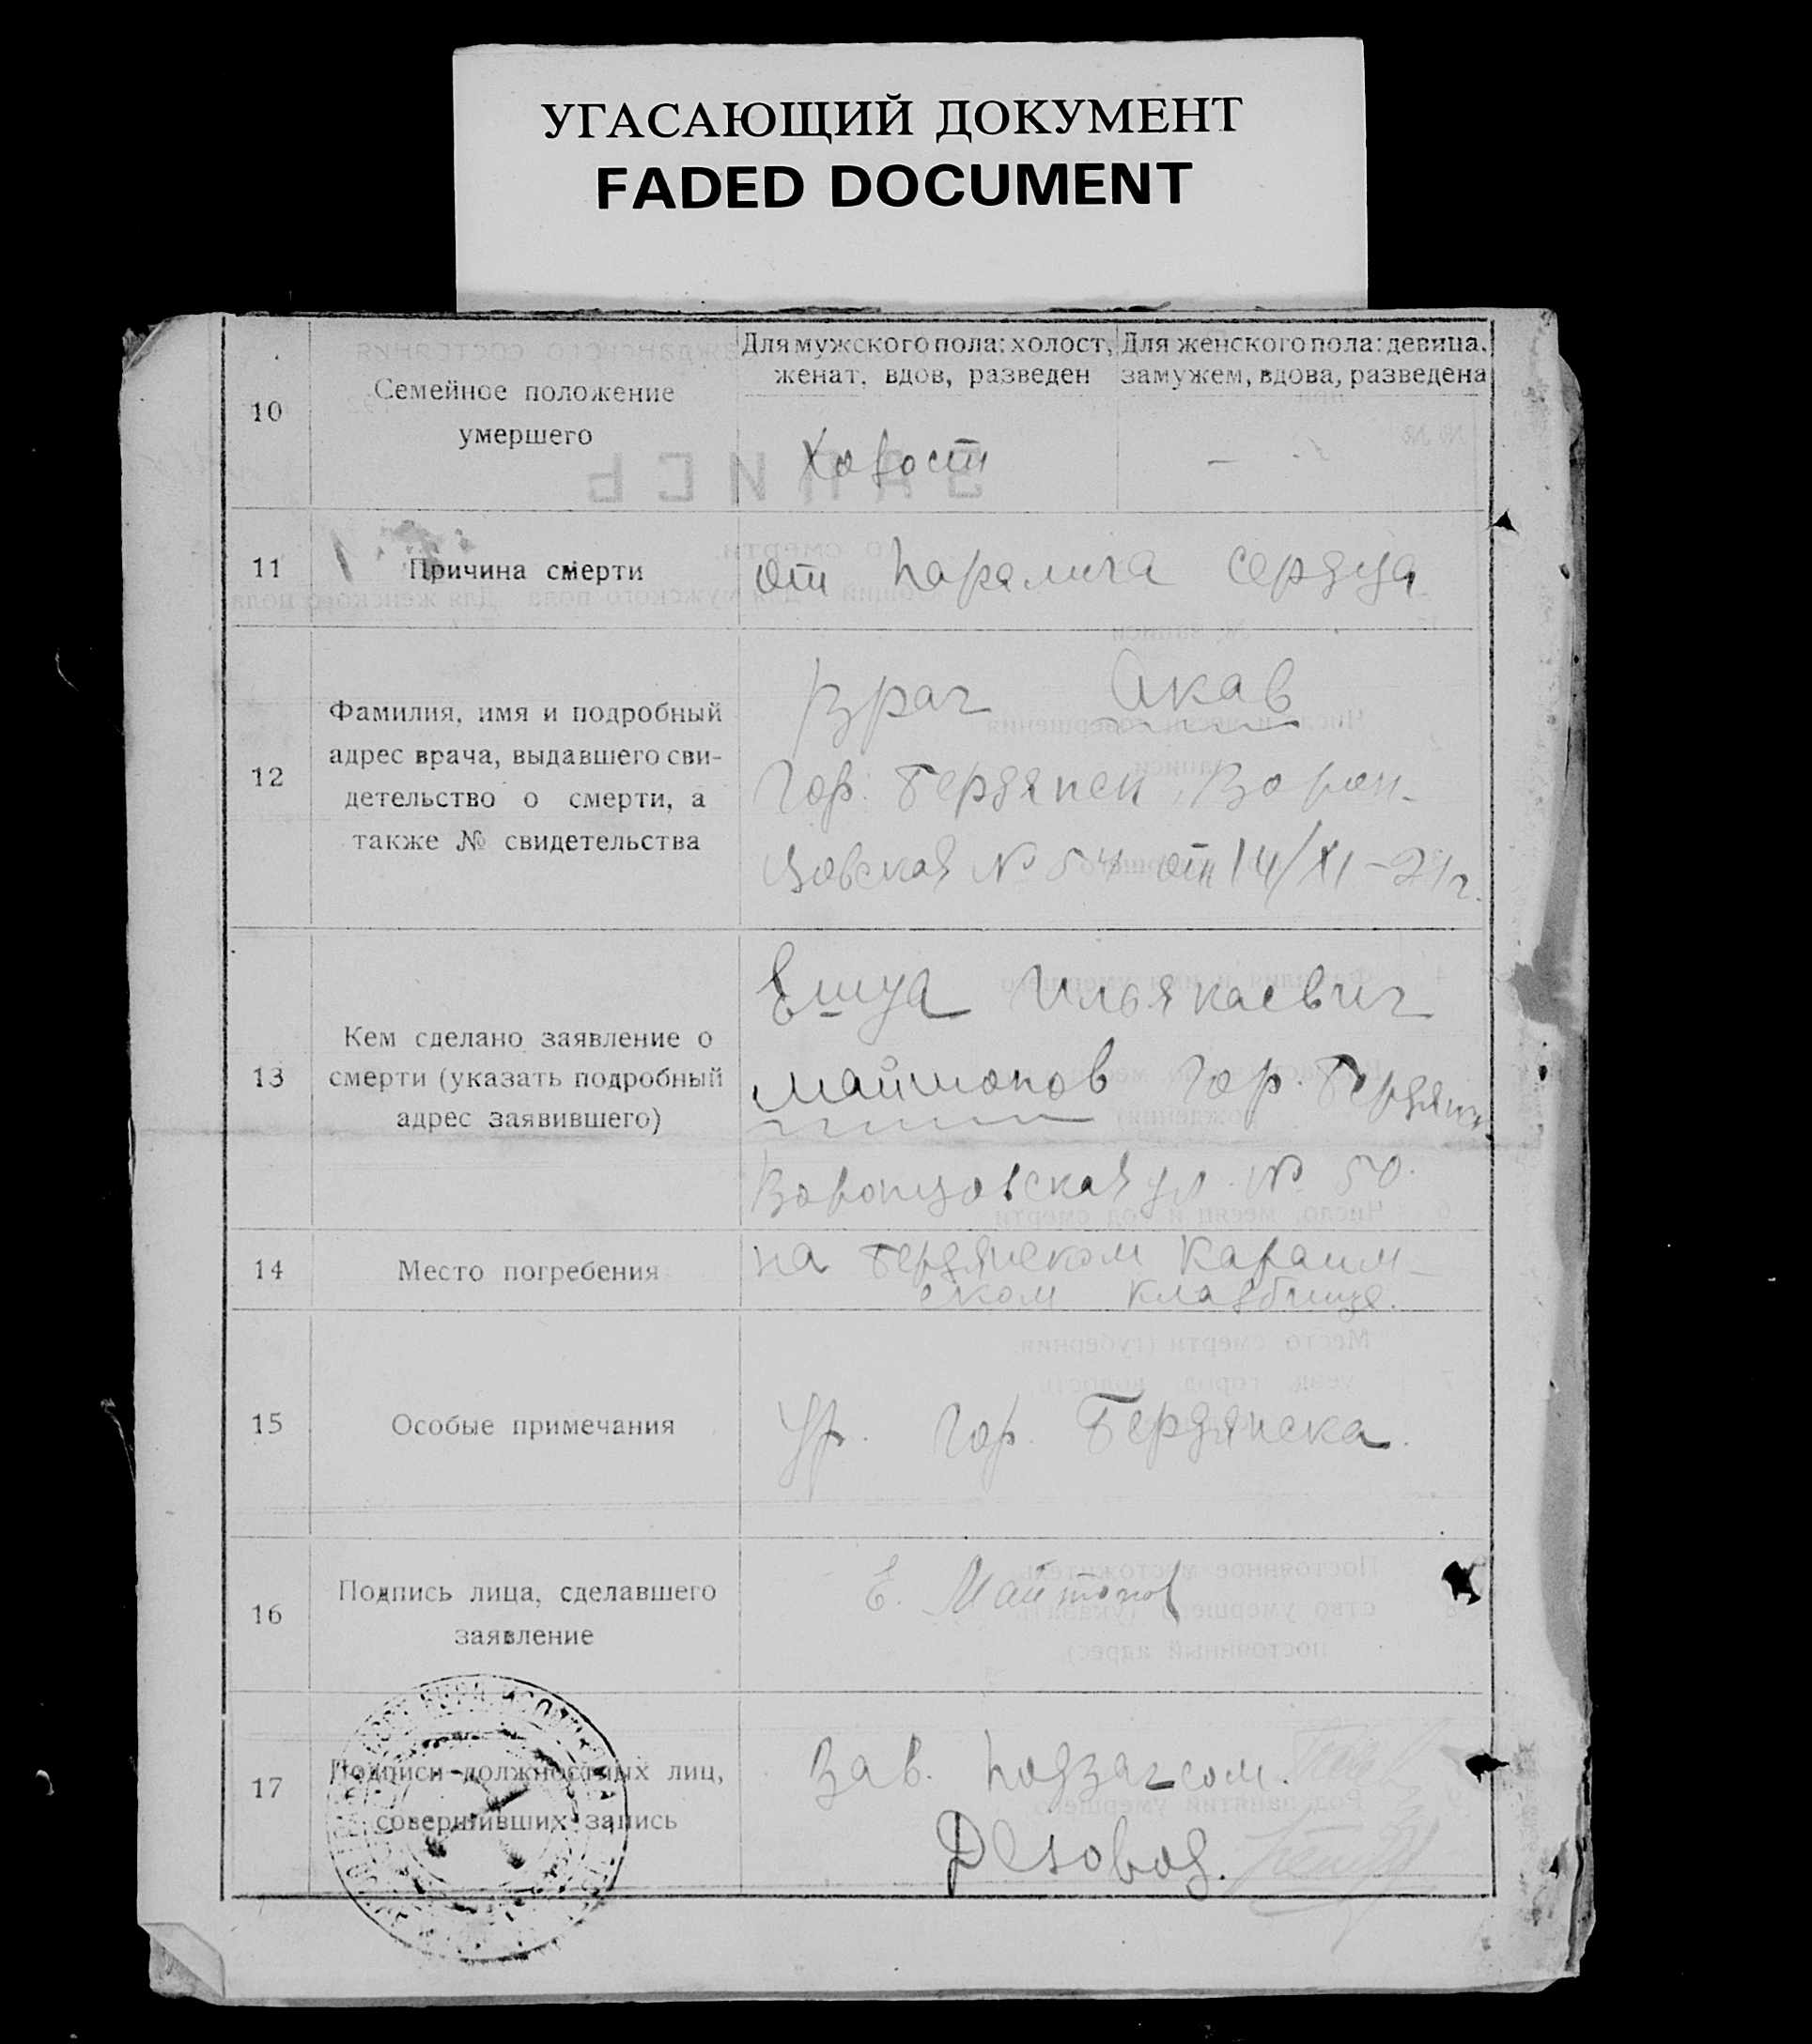 УГАСАЮЩИЙ ДОКУМЕНТ
FADED DOCUMENT
10
Семейное положение
умершего
Для мужского пола: холост,
женат, вдов, разведен
Для женского пола: девица,
замужем, вдова, разведена
Холост
—
11
Причина смерти
от паралича сердца
12
Фамилия, имя и подробный
адрес врача, выдавшего сви-
детельство о смерти, а
также № свидетельства
Врач Акав
Гор. Бердянск, Ворон-
цовская № 54 от 14/XI-21г.
13
Кем сделано заявление о
смерти (указать подробный
адрес заявившего)
Ешуа
Гор. Бердянск
Воронцовская ул. № 50.
14
Место погребения
на Бердянском Караим-
ском кладбище.
15
Особые примечания
Ур. Гор. Бердянска.
16
Подпись лица, сделавшего
заявление
Е.
17
Подписи должностных лиц,
совершивших запись
Зав. подзагсом.
Деловод.